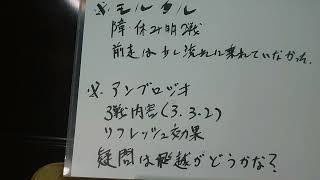 ※モルタル
障・休み明2戦
前走は少し流れに乗れていなかった。
※アンブロジオ
3戦内容(3.3.2)
リフレッシュ効果
疑問は飛越がどうかな?